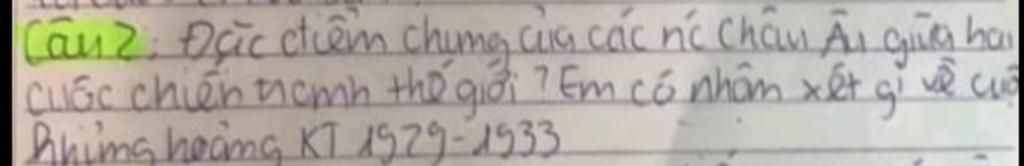 Câu 2: Đặc điểm chung của các nc Châu Âu giữa hai
cuộc chiến tranh thế giới? Em có nhận xét gì về cuộ
khủng hoảng KT 1929-1933